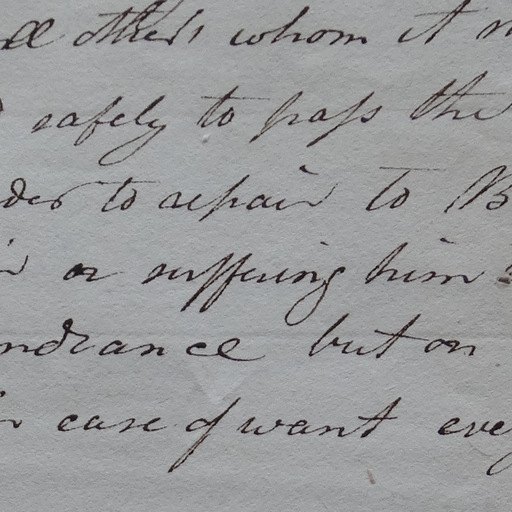 all others whom it m
safely to pass the
der to repair to B
or suffering him
ndrance but on
in case of want eve